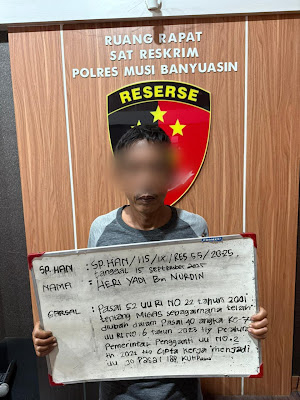 RUANG RAPAT
SAT RESKRIM
POLRES MUSI BANYUASIN
RESERSE
SP. HAN : SP. HAN / 115 / IX / RES 5.5 / 2025
tanggal 15 September 2025
NAMA : HERI YADI Bin NURDIN
PASAL : Pasal 52 UU RI NO 22 tahun 2001
tentang MIGAS sebagaimana telah
diubah dalam Pasal 40 angka ke-7
UU RI NO 6 tahun 2023 ttg Peratura
Pemerintah Pengganti UU NO.2
th 2021 ttg Cipta Kerja menjadi
UU Jo Pasal 188 KUHPidana